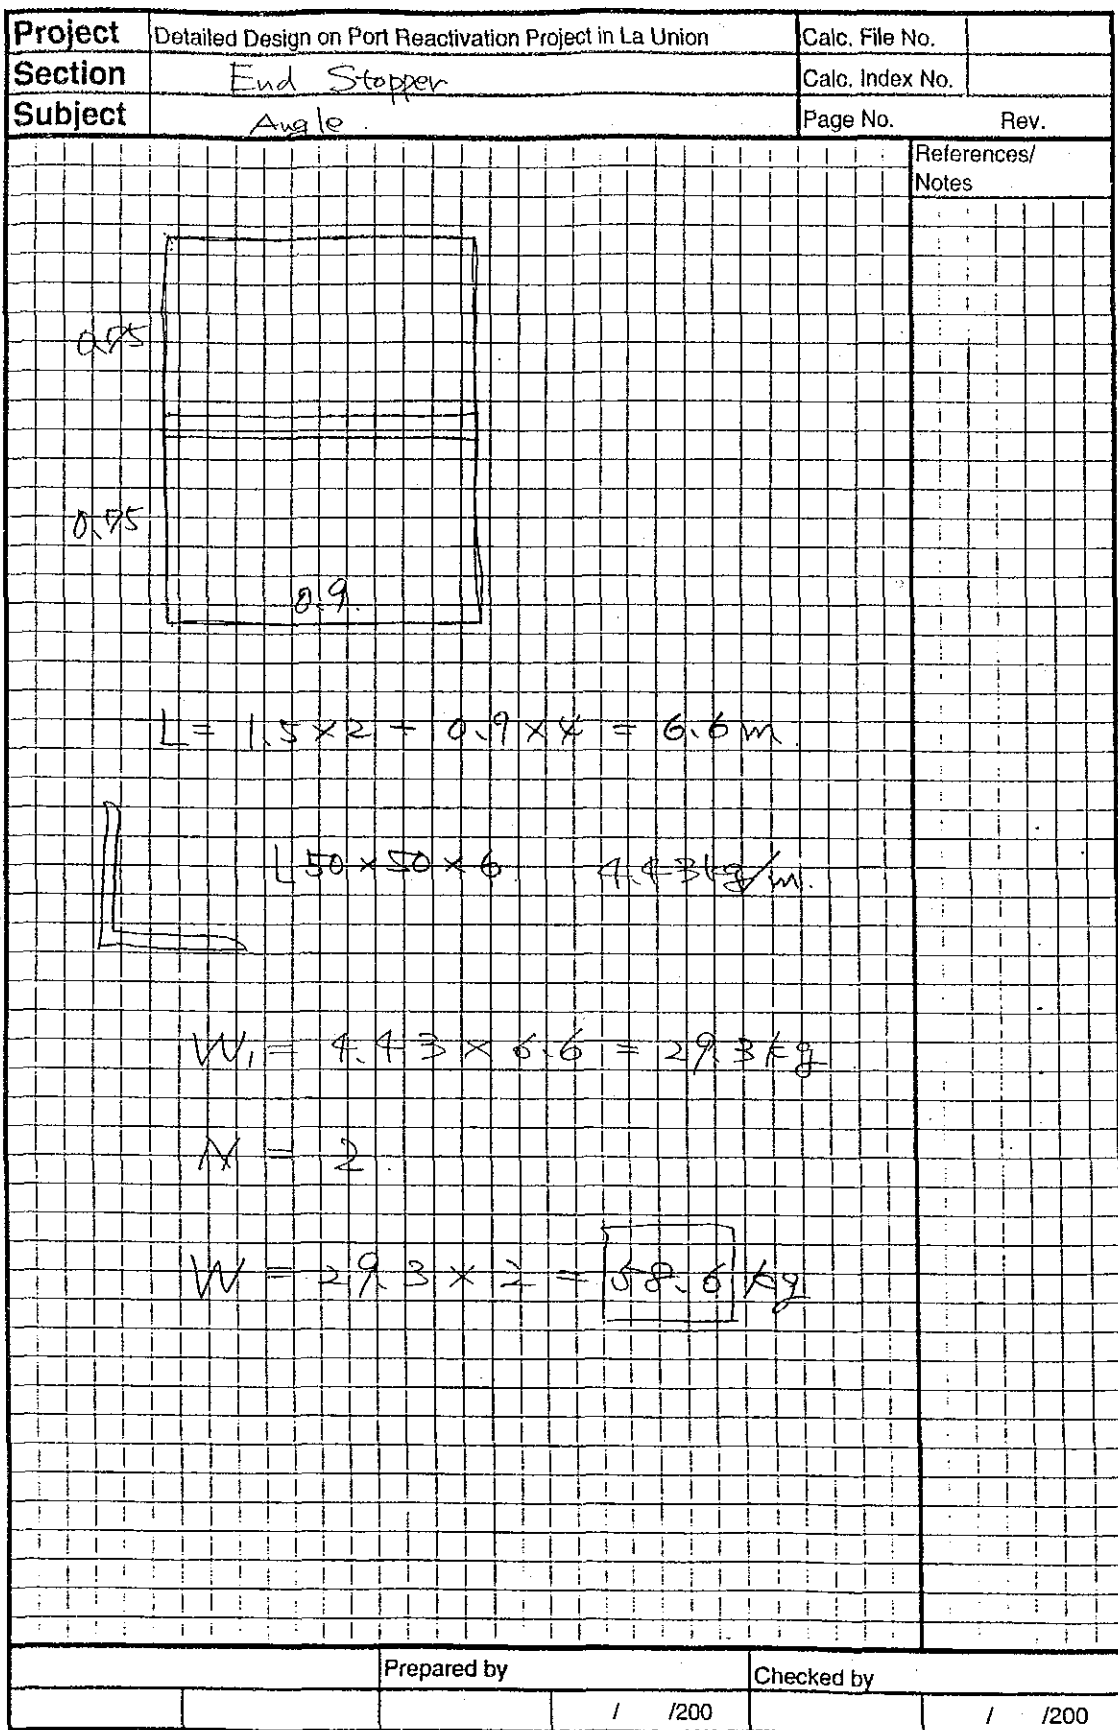 Project Detailed Design on Port Reactivation Project in La Union Calc. File No.
Section End Stopper Calc. Index No.
Subject Angle. Page No. Rev.
References/
Notes
0.75
0.75
0.9.
L = 1.5 × 2 + 0.9 × 4 = 6.6 m.
L 50 × 50 × 6 4.43 kg/m.
W₁ = 4.43 × 6.6 = 29.3 kg
N = 2.
W = 29.3 × 2 = 58.6 kg
Prepared by Checked by
/ /200 / /200